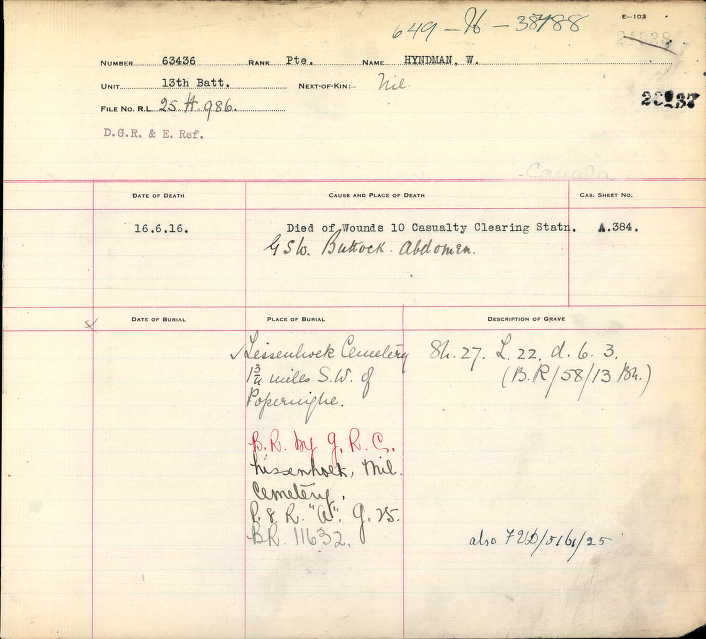 649-H-38488
E-103
24838
NUMBER 63436 RANK Pte. NAME HYNDMAN, W.
UNIT 13th Batt. NEXT-OF-KIN:- Nil
FILE NO. R.L. 25.H.986.
D.G.R. & E. Ref.
Canada
DATE OF DEATH CAUSE AND PLACE OF DEATH CAS. SHEET NO.
16.6.16. Died of Wounds 10 Casualty Clearing Statn. A.384.
G.S.W. Buttock. Abdomen.
DATE OF BURIAL PLACE OF BURIAL DESCRIPTION OF GRAVE
Lissenhoek Cemetery Sh. 27. L. 22. d. 6. 3.
1 3/4 miles S.W. of (B.R/58/13 Bn.)
Poperninghe.
B.R. by G.R.C.
Lissenhoek, Mil.
Cemetery.
P. 8 R. "A". G. 25.
BR. 11632.
also